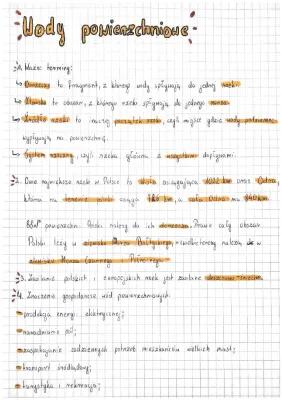 Wody powierzchniowe
1. Ważne terminy:
↳ Dorzecze to fragment, z którego wody spływają do jednej rzeki.
↳ Zlewisko to obszar, z którego rzeki spływają do jednego morza.
↳ Źródło rzeki to inaczej początek rzeki, czyli miejsce gdzie wody podziemne
wypływają na powierzchnię.
↳ System rzeczny, czyli rzeka główna z wszystkimi dopływami.
2. Dwie największe rzeki w Polsce to Wisła osiągająca 1022 km oraz Odra,
która na terenie polski ciąga
88% powierzchni Polski należy do ich dorzecza. Prawie cały obszar
Polski leży w zlewisku Morza Bałtyckiego, niewielkie tereny należą też w
zlewiskach Morza Czarnego Północnego
3. Zasilanie polskich i europejskich rzek jest zasilane deszczowo-śnieżne.
4. Znaczenie gospodarcze wód powierzchniowych:
produkcja energii elektrycznej;
nawadnianie pól;
zaspokajanie codziennych potrzeb mieszkańców wielkich miast;
transport śródlądowy;
turystyka i rekreacja;